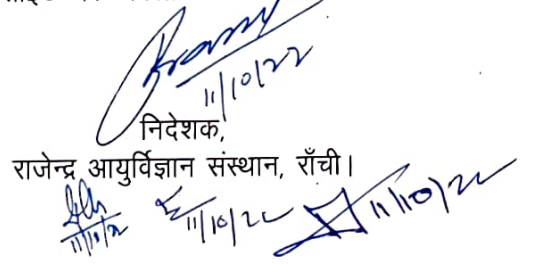 11/10/22
निदेशक,
राजेन्द्र आयुर्विज्ञान संस्थान, राँची।
11/10/2 11/10/22 11/10/22